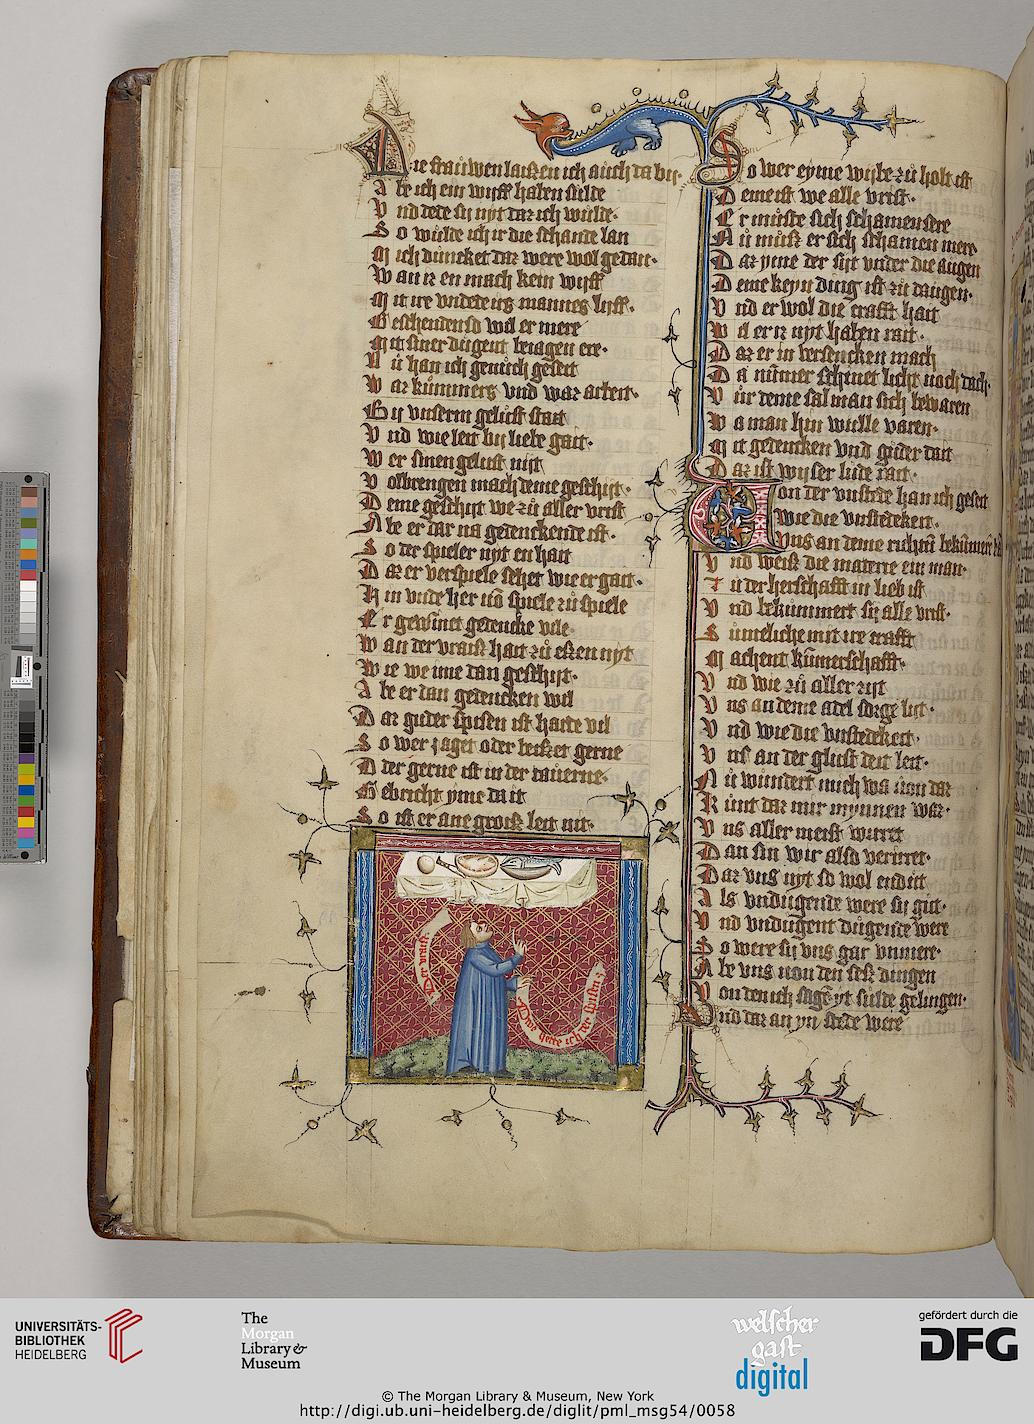 Die frauwen laißen ich auch da by
A be ich ein wyff haben sulde
V nd dede sy nyt daz ich wulde·
S o wulde ich ir die schande lan
M ich duncket daz were wol gedan·
W an iz en mach kein wyff
M it ire vndedeng mannes lyff·
B eschenden so wol er mere
M it siner dugent beiagen ere·
N u han ich genuch geseit
W az kummers vnd waz arbeit·
By vnserm gelust stait
V nd wie leit by liebe gait·
W er sinen gelust nyt
V olbrengen mach deme geschyt·
D eme geschyt we zu aller vrist
A be er dar na gedenckende ist·
S o der spieler nyt en hait
D az er verspiele sehet wie er gait·
H in vnde her von spiele zu spiele
E r gewinnet gedencke vile·
W an der vraiß hait zu eßen nyt
W ie we ime dan geschyt·
A be er dan gedencken wil
D az guder spisen ist harte vil
S o wer jaget oder beißet gerne
O der gerne ist in der tauerne·
G ebricht yme da it
S o ist er ane groiß leit nit·
Der vraiß
So wer eyme wybe zu holt ist
D eme ist we alle vrist·
E r muste sich schamen sere
N u muß er sich schamen mere
D az yme der syt vnder die augen
D eme keyn ding ist zu daugen·
V nd er wol die crafft hait
W il er iz nyt haben rait·
D az er in versencken mach
D a nummer schenet licht noch dach·
V ur deme sal man sich bewaren
W a man hin wulle varen·
M it gedencken vnd guder dait
D az ist wyser lude rait·
Von der vnstede han ich geseit
Wie die vnstedekeit·
Vns an deme richtum bekummert
V nd weiß die materie ein man·
Z u der herschafft in lieb ist
V nd bekummert sy alle vrist·
S umeliche mit ire crafft
M achent kumerschafft·
V nd wie zu aller zyt
V ns an deme adel sorge lyt·
V nd wie die vnstedekeit·
V ns an der glust deit leit·
N u wundert mich wa von daz
K umt daz mir mynnen waz·
V ns aller meist wirret
D an sin wir also verirret·
D az vns nyt so wol endut
A ls vndugende were sy gut·
V nd vndugent dugende were
S o were sy vns gar vnmere·
A be vns von den seß dingen
V on den ich sage yt sulde gelingen·
Vnd daz an yn stede were
UNIVERSITÄTS-
BIBLIOTHEK
HEIDELBERG
The
Morgan
Library &
Museum
welscher
gast
digital
gefördert durch die
DFG
© The Morgan Library & Museum, New York
http://digi.ub.uni-heidelberg.de/diglit/pml_msg54/0058